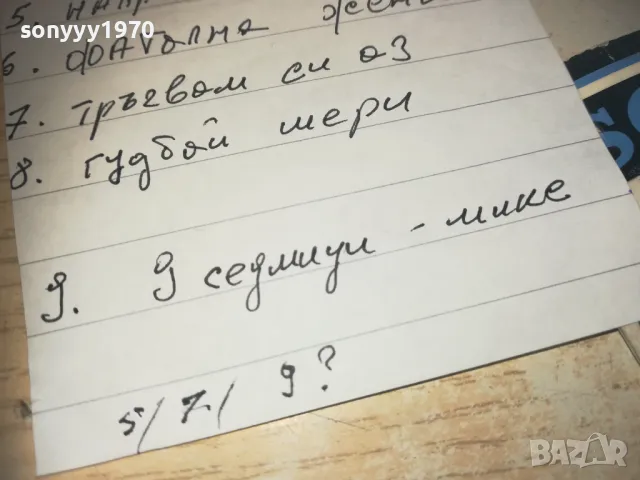 sonyyy1970
6. фатална жена
7. тръгвам си аз
8. гудбай мери
9. 9 седмици - мике
5/ 7./ 9?
BAZAR